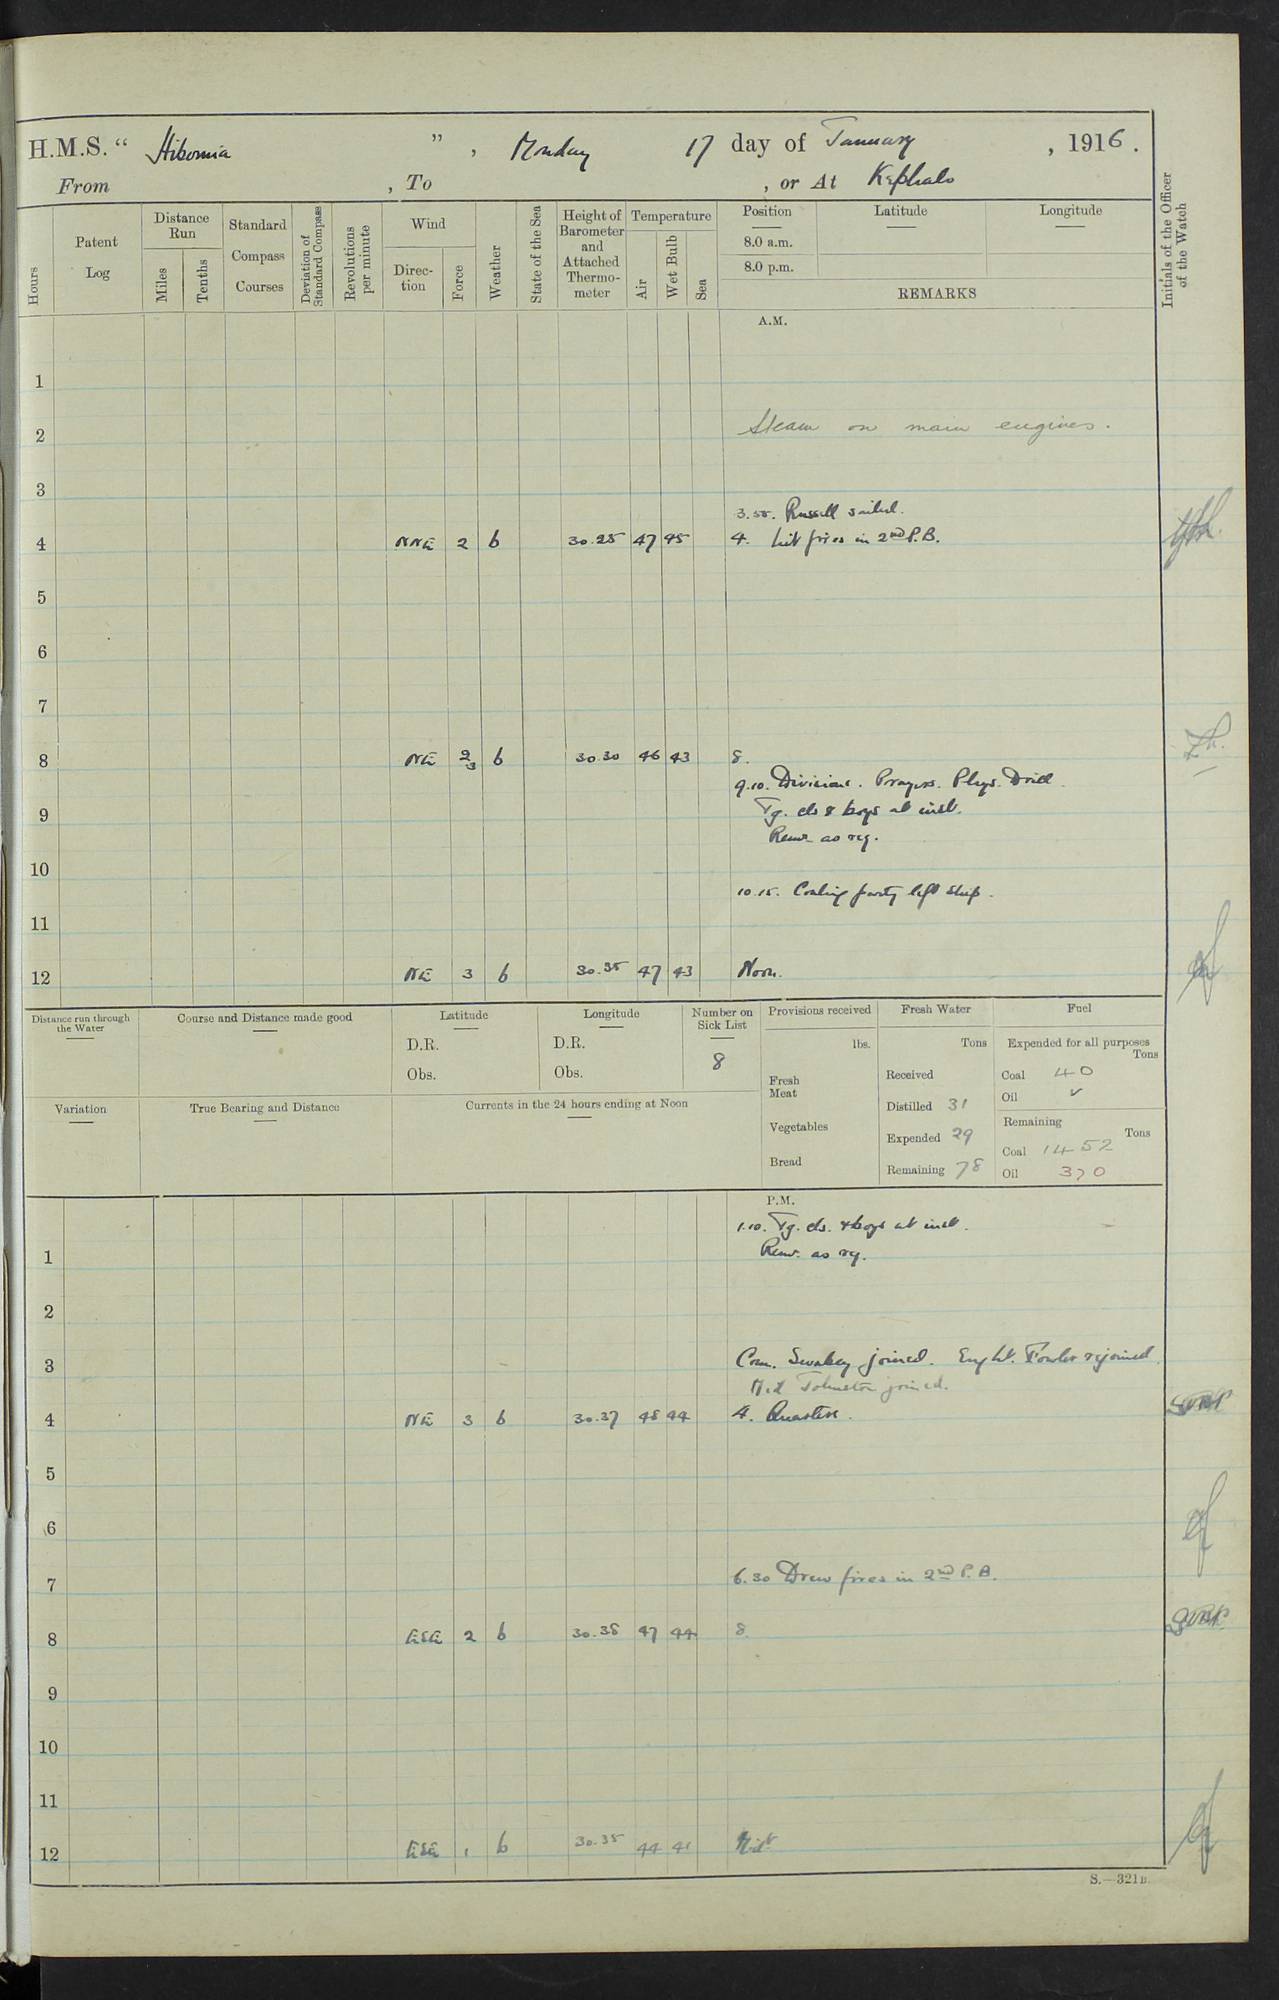 H.M.S. “ Hibernia ” , Monday 17 day of January , 1916.
From , To , or At Kephalo
Hours
Patent Log
Distance Run
Miles
Tenths
Standard Compass Courses
Deviation of Standard Compass
Revolutions per minute
Wind
Direction
Force
Weather
State of the Sea
Height of Barometer and Attached Thermometer
Temperature
Air
Wet Bulb
Sea
Position Latitude Longitude
8.0 a.m.
8.0 p.m.
REMARKS
Initials of the Officer of the Watch
A.M.
1
2 Steam on main engines.
3
3.55. Russell sailed.
4 NNE 2 b 30.25 47 45 4. Lit fires in 2nd P.B.
5
6
7
8 NE 2/3 b 30.30 46 43 8.
9.10. Divisions. Prayers. Phys. Drill.
9 Tg. cls & boys at inst.
Remr as req.
10
10.15. Coaling party left ship.
11
12 NE 3 b 30.35 47 43 Noon.
Distance run through the Water
Course and Distance made good
Latitude
D.R.
Obs.
Longitude
D.R.
Obs.
Number on Sick List
8
Provisions received
lbs.
Fresh Meat
Vegetables
Bread
Fresh Water
Tons
Received
Distilled 31
Expended 29
Remaining 78
Fuel
Expended for all purposes
Tons
Coal 40
Oil ✓
Remaining
Tons
Coal 1452
Oil 370
Variation
True Bearing and Distance
Currents in the 24 hours ending at Noon
P.M.
1.10. Tg. cls. & boys at inst.
1 Remr. as rq.
2
3 Com. Swabey joined. Eng Lt. Fowler rejoined.
Mid Johnston joined.
4 NE 3 b 30.37 48 44 4. Quarters.
5
6
7 6.30 Drew fires in 2nd P.B.
8 ESE 2 b 30.38 47 44 8
9
10
11
12 ESE 1 b 30.35 44 41 Midt
S.—321B.